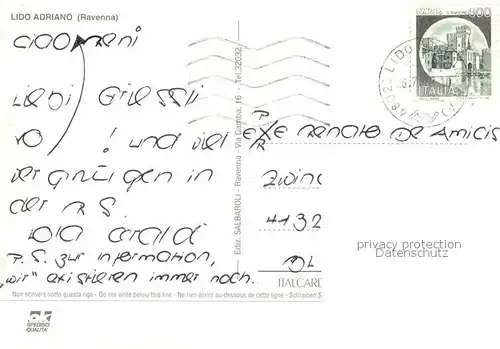 LIDO ADRIANO (Ravenna)
ciao
Liebi Griessli
vo ! und viel
vergnügen in
der R.S.
P.S. zur information,
"wir" existieren immer noch..
Ediz. SALBAROLI - Ravenna - Via Gamba, 16 - Tel. 32032
600
ITALIA
48022 LIDO
Renato De Amicis
4132
privacy protection
Datenschutz
ITALCARD
Non scrivere sotto questa riga - Do not write below this line - Ne rien écrire au-dessous de cette ligne - Schreiben S
SPEDISCI
QUALITA'